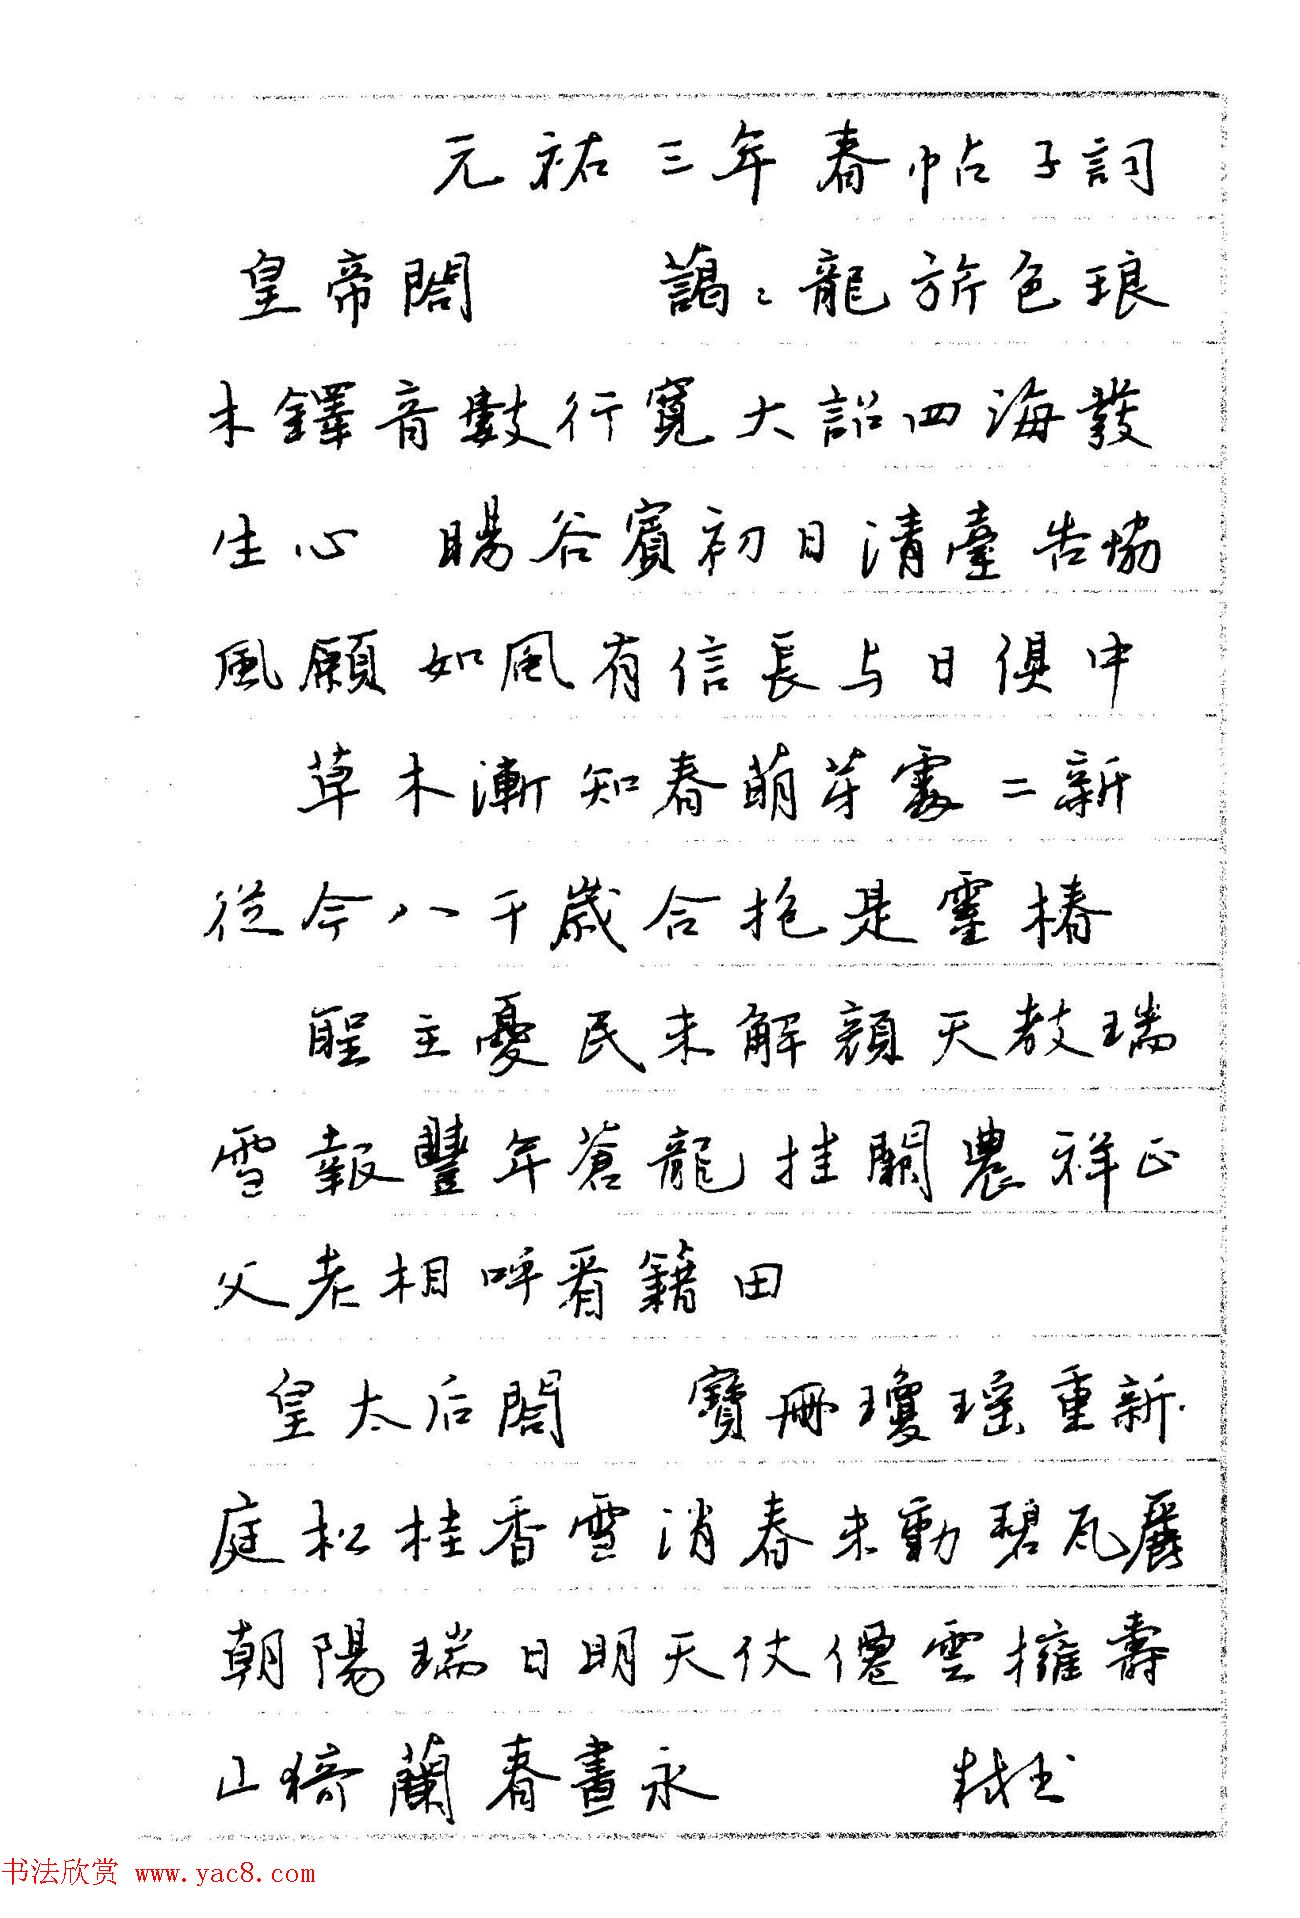 元祐三年春帖子詞
皇帝閤 藹〻龍旂色琅
木鐸音數行寬大詔四海發
生心 暘谷賓初日清臺告協
風願如風有信長与日俱中
草木漸知春萌芽處二新
從今八千歲合抱是靈椿
聖主憂民未解顏天教瑞
雪報豐年蒼龍挂闕農祥正
父老相呼看籍田
皇太后閤 寶冊瓊瑤重新
庭松桂香雪消春未動碧瓦麗
朝陽瑞日明天仗僊雲擁壽
山猗蘭春晝永
书法欣赏 www.yac8.com